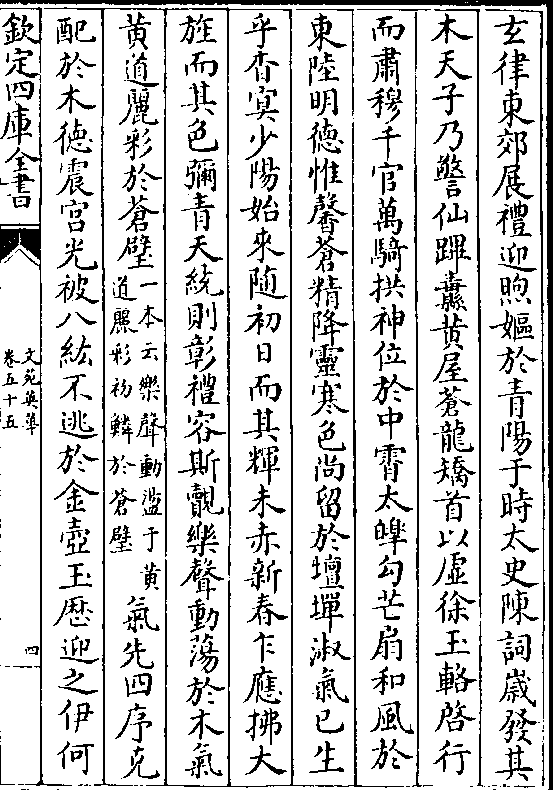 玄律東郊展禮迎煦嫗於青陽于時太史陳詞歳發其
木天子乃警仙蹕纛黄屋蒼龍矯首以虚徐玉輅啓行
而肅穆千官萬騎拱神位於中霄太皥勾芒扇和風於
東陸明德惟馨蒼精降靈寒色尚留於壇墠淑氣已生
乎杳冥少陽始來随初日而其輝未赤新春乍應拂大
旌而其色彌青天統則彰禮容斯覿樂聲動蕩於木氣
黄道麗彩於蒼壁一本云樂聲動盪于黄道麗彩初鱗於蒼璧氣先四序克
配於木徳震宫光被八紘不逃於金壺玉厯迎之伊何
欽定四庫全書
文苑英華
卷五十五
四